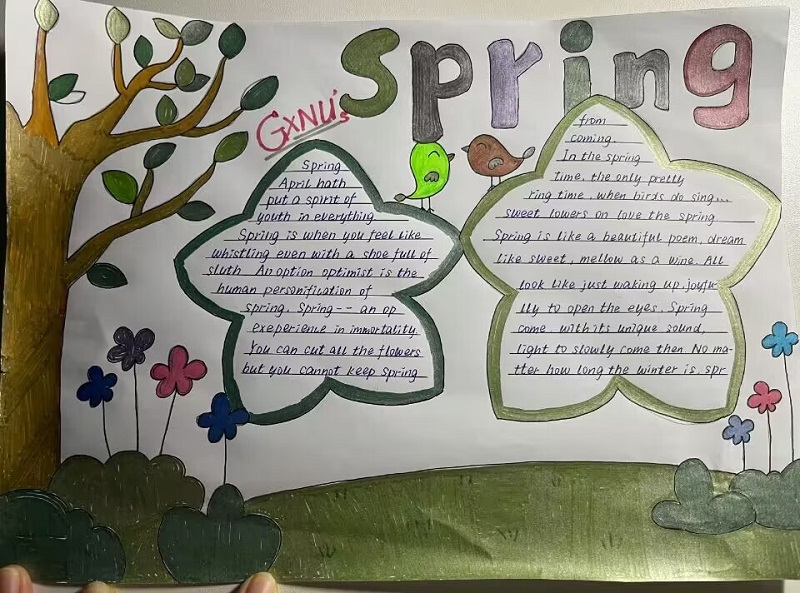 Spring
GXNU's
Spring
April hath
put a spirit of
youth in everything
Spring is when you feel like
whistling even with a shoe full of
sluth An option optimist is the
human personification of
spring. Spring-- an op
exeperience in immortality.
You can cut all the flowers
but you cannot keep Spring
from
coming.
In the spring
time, the only pretty
ring time, when birds do sing...
sweet lowers on love the spring
Spring is like a beautiful poem, dream
like sweet, mellow as a wine. All
look like just waking up, joyfu
lly to open the eyes. Spring
come, with its unique sound,
light to slowly come then No ma-
tter how long the winter is, spr